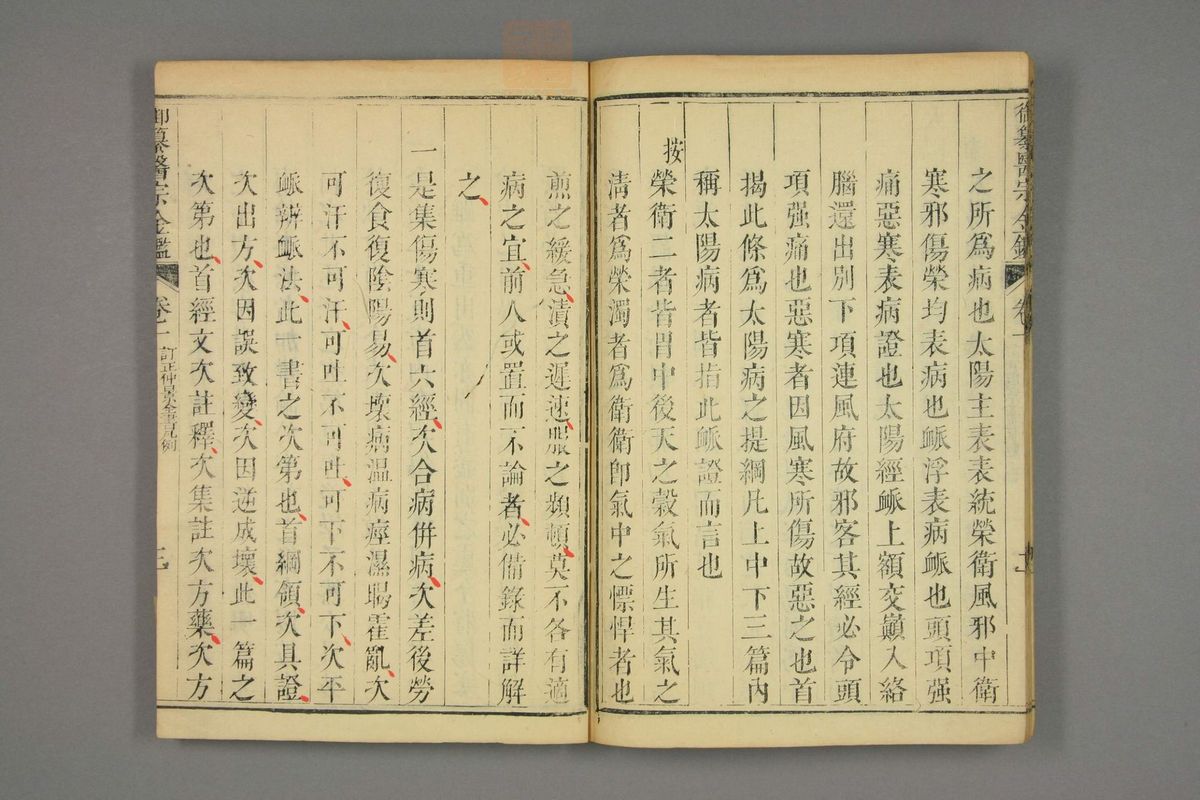 御纂醫宗金鑑 卷一
之所爲病也太陽主表表統榮衛風邪中衛
寒邪傷榮均表病也脈浮表病脈也頭項强
痛惡寒表病證也太陽經脈上額交巔入絡
腦還出別下項連風府故邪客其經必令頭
項强痛也惡寒者因風寒所傷故惡之也首
揭此條爲太陽病之提綱凡上中下三篇內
稱太陽病者皆指此脈證而言也
按榮衛二者皆胃中後天之穀氣所生其氣之
淸者爲榮濁者爲衛衛卽氣中之慓悍者也
煎之緩急漬之遲速服之頻頓莫不各有適
病之宜前人或置而不論者必備錄而詳解
之
一是集傷寒則首六經次合病倂病次差後勞
復食復陰陽易次壞病温病痙濕暍霍亂次
可汗不可汗可吐不可吐可下不可下次平
脈辨脈法此一書之次第也首綱領次具證
次出方次因誤致變次因逆成壞此一篇之
次第也首經文次註釋次集註次方藥次方
御纂醫宗金鑑 卷一 訂正仲景全書凡例 三